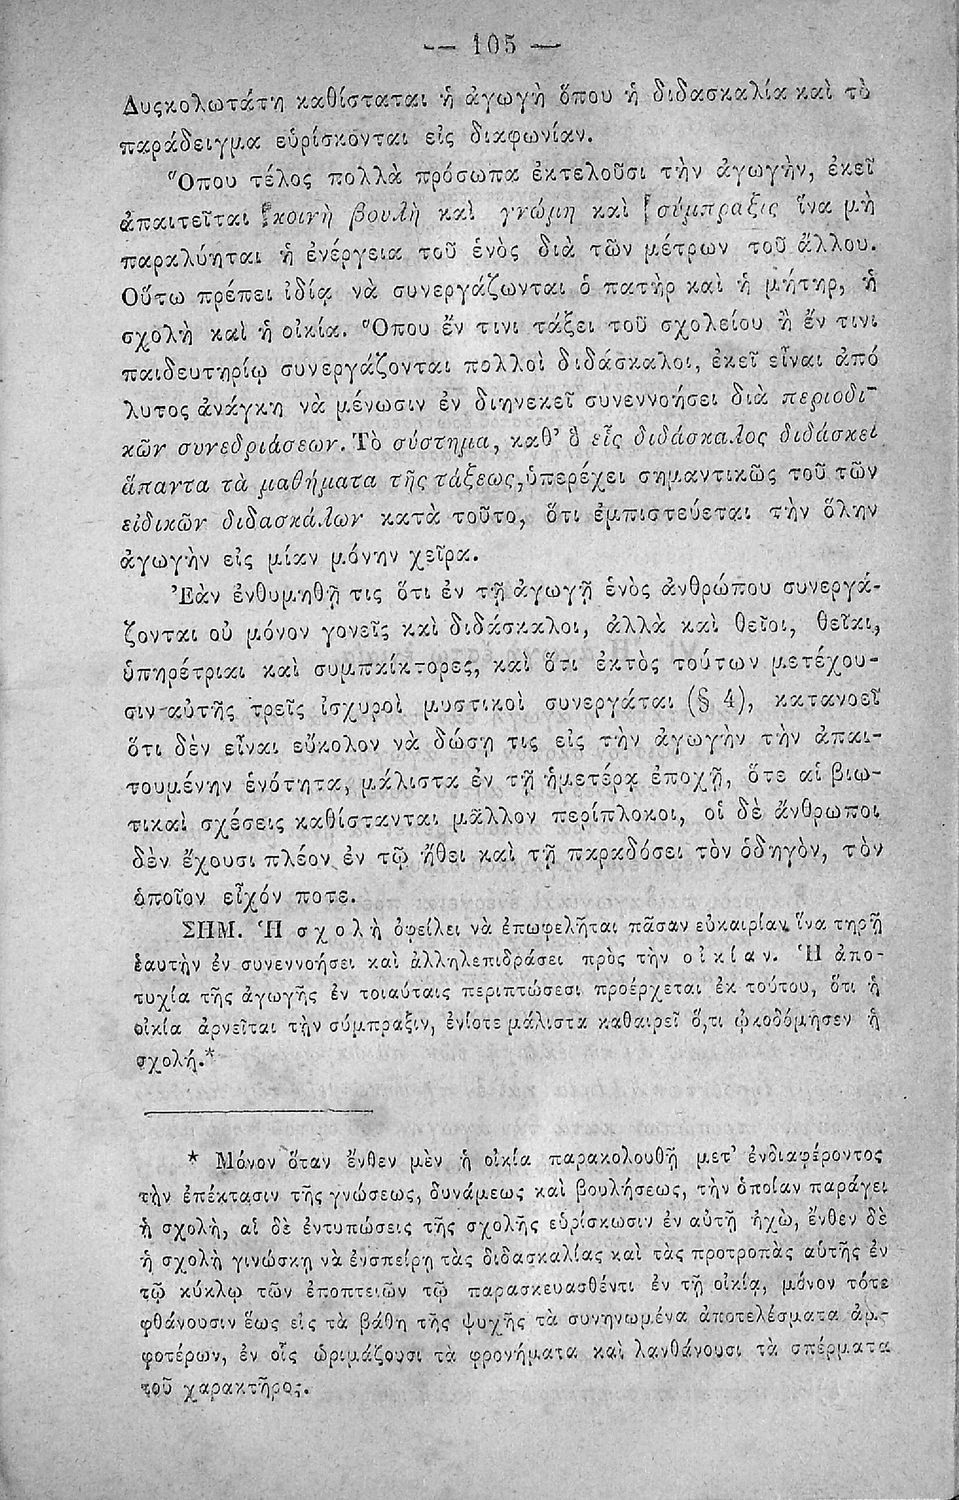 — 105 —
Δυςκολωτάτη καθίσταται ἡ ἀγωγὴ ὅπου ἡ διδασκαλία καὶ τὸ
παράδειγμα εὑρίσκονται εἰς διαφωνίαν.
Ὅπου τέλος πολλὰ πρόσωπα ἐκτελοῦσι τὴν ἀγωγὴν, ἐκεῖ
ἀπαιτεῖται κοινὴ βουλὴ καὶ γνώμη καὶ σύμπραξις ἵνα μὴ
παραλύηται ἡ ἐνέργεια τοῦ ἑνὸς διὰ τῶν μέτρων τοῦ ἄλλου.
Οὕτω πρέπει ἰδίᾳ νὰ συνεργάζωνται ὁ πατὴρ καὶ ἡ μήτηρ, ἡ
σχολὴ καὶ ἡ οἰκία. Ὅπου ἔν τινι τάξει τοῦ σχολείου ἢ ἔν τινι
παιδευτηρίῳ συνεργάζονται πολλοὶ διδάσκαλοι, ἐκεῖ εἶναι ἀπό
λυτος ἀνάγκη νὰ μένωσιν ἐν διηνεκεῖ συνεννοήσει διὰ περιοδι-
κῶν συνεδριάσεων. Τὸ σύστημα, καθ’ ὃ εἷς διδάσκαλος διδάσκει
ἅπαντα τὰ μαθήματα τῆς τάξεως, ὑπερέχει σημαντικῶς τοῦ τῶν
εἰδικῶν διδασκάλων κατὰ τοῦτο, ὅτι ἐμπιστεύεται τὴν ὅλην
ἀγωγὴν εἰς μίαν μόνην χεῖρα.
Ἐὰν ἐνθυμηθῇ τις ὅτι ἐν τῇ ἀγωγῇ ἑνὸς ἀνθρώπου συνεργά-
ζονται οὐ μόνον γονεῖς καὶ διδάσκαλοι, ἀλλὰ καὶ θεῖοι, θεῖαι,
ὑπηρέτριαι καὶ συμπαίκτορες, καὶ ὅτι ἐκτὸς τούτων μετέχου-
σιν αὐτῆς τρεῖς ἰσχυροὶ μυστικοὶ συνεργάται (§ 4), κατανοεῖ
ὅτι δὲν εἶναι εὔκολον νὰ δώσῃ τις εἰς τὴν ἀγωγὴν τὴν ἀπαι-
τουμένην ἑνότητα, μάλιστα ἐν τῇ ἡμετέρᾳ ἐποχῇ, ὅτε αἱ βιω-
τικαὶ σχέσεις καθίστανται μᾶλλον περίπλοκοι, οἱ δὲ ἄνθρωποι
δὲν ἔχουσι πλέον ἐν τῷ ἤθει καὶ τῇ παραδόσει τὸν ὁδηγὸν, τὸν
ὁποῖον εἶχόν ποτε.
ΣΗΜ. Ἡ σχολὴ ὀφείλει νὰ ἐπωφελῆται πᾶσαν εὐκαιρίαν, ἵνα τηρῇ
ἑαυτὴν ἐν συνεννοήσει καὶ ἀλληλεπιδράσει πρὸς τὴν οἰκίαν. Ἡ ἀπο-
τυχία τῆς ἀγωγῆς ἐν τοιαύταις περιπτώσεσι προέρχεται ἐκ τούτου, ὅτι ἡ
οἰκία ἀρνεῖται τὴν σύμπραξιν, ἐνίοτε μάλιστα καθαιρεῖ ὅ,τι ᾠκοδόμησεν ἡ
σχολή.*
* Μόνον ὅταν ἔνθεν μὲν ἡ οἰκία παρακολουθῇ μετ’ ἐνδιαφέροντος
τὴν ἐπέκτασιν τῆς γνώσεως, δυνάμεως καὶ βουλήσεως, τὴν ὁποίαν παράγει
ἡ σχολὴ, αἱ δὲ ἐντυπώσεις τῆς σχολῆς εὑρίσκωσιν ἐν αὐτῇ ἠχὼ, ἔνθεν δὲ
ἡ σχολὴ γινώσκῃ νὰ ἐνσπείρῃ τὰς διδασκαλίας καὶ τὰς προτροπὰς αὑτῆς ἐν
τῷ κύκλῳ τῶν ἐποπτειῶν τῷ παρασκευασθέντι ἐν τῇ οἰκίᾳ, μόνον τότε
φθάνουσιν ἕως εἰς τὰ βάθη τῆς ψυχῆς τὰ συνηνωμένα ἀποτελέσματα ἀμ-
φοτέρων, ἐν οἷς ὡριμάζουσι τὰ φρονήματα καὶ λανθάνουσι τὰ σπέρματα
τοῦ χαρακτῆρος.